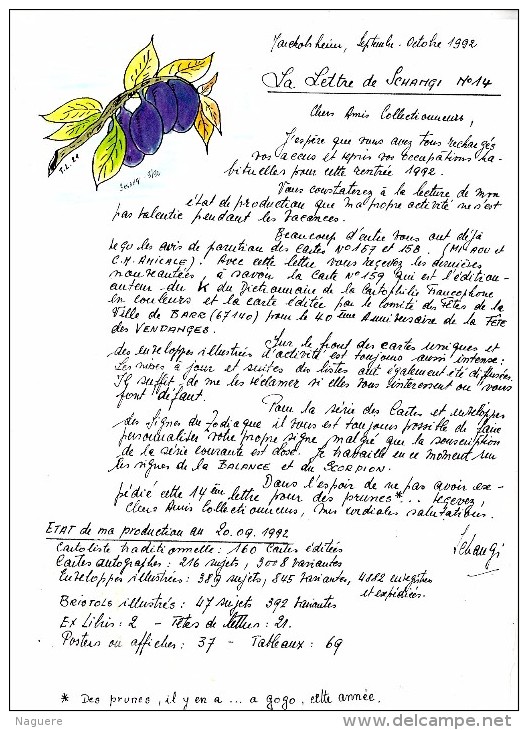 Marckolsheim, Septembre-Octobre 1992
La Lettre de SCHANGI No 14
Chers Amis Collectionneurs,
J'espère que vous avez tous rechargés
vos accus et repris vos occupations ha-
bituelles pour cette rentrée 1992.
Vous constaterez à la lecture de mon
état de production que ma propre activité ne s'est
pas ralentie pendant les vacances.
Beaucoup d'entre vous ont déjà
reçu les avis de parution des cartes No 157 et 158. (MILDOU et
C.M. AMICALE)! Avec cette lettre vous recevez les dernières
nouveautées, à savoir la Carte No 159 qui est l'édition-
auteur du K du Dictionnaire de la Cartophilie Francophone
en couleurs et la carte éditée par le Comité des Fêtes de la
Ville de BARR (67140) pour le 40 ème Anniversaire de la FÊTE
des VENDANGES.
Sur le front des cartes uniques et
des enveloppes illustrées l'activité est toujours aussi intense:
Les mises à jour et suites des listes ont également été diffusées.
Il suffit de me les réclamer si elles vous intéressent ou vous
font "défaut.
Pour la série des Cartes et enveloppes
des Signes du Zodiaque il vous est toujours possible de faire
personnaliser votre propre signe, malgré que la souscription
de la série courante est close. Je travaille en ce moment sur
les signes de la BALANCE et du SCORPION.
Dans l'espoir de ne pas avoir ex-
pédié cette 14 ème lettre pour des prunes*... recevez
Chers Amis Collectionneurs, mes cordiales salutations.
Schangi
ETAT de ma production au 20.09.1992
Cartoliste traditionnelle: 160 Cartes éditées
Cartes autographes: 216 sujets, 3008 variantes
Enveloppes illustrées: 389 sujets, 845 variantes, 4882 enregistrées
et expédiées.
BRISTOLS illustrés: 47 sujets 392 variantes
EX Libris: 2 - Têtes de lettres: 21.
Posters ou affiches: 37 - Tableaux: 69
* Des prunes, il y en a ... a gogo, cette année.
Naguere
www.delcampe.net